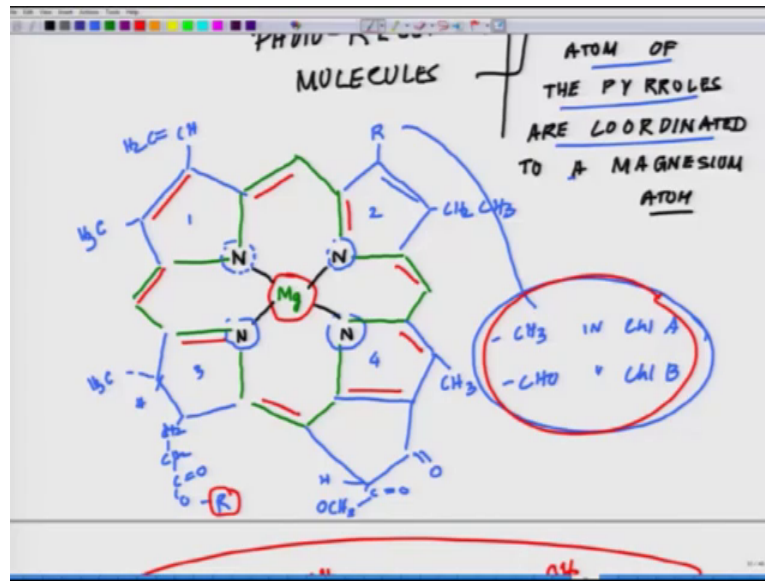 MOLECULES
ATOM OF
THE PYRROLES
ARE LOORDINATED
TO A MAGNESIUM
ATOM
H2C=CH
R
1
2
CH2CH3
H3C
N
N
Mg
N
N
3
4
H3C
CH3
-CH3 IN Chl A
-CHO " Chl B
C=O
O-R
H
O
OCH3
C=O